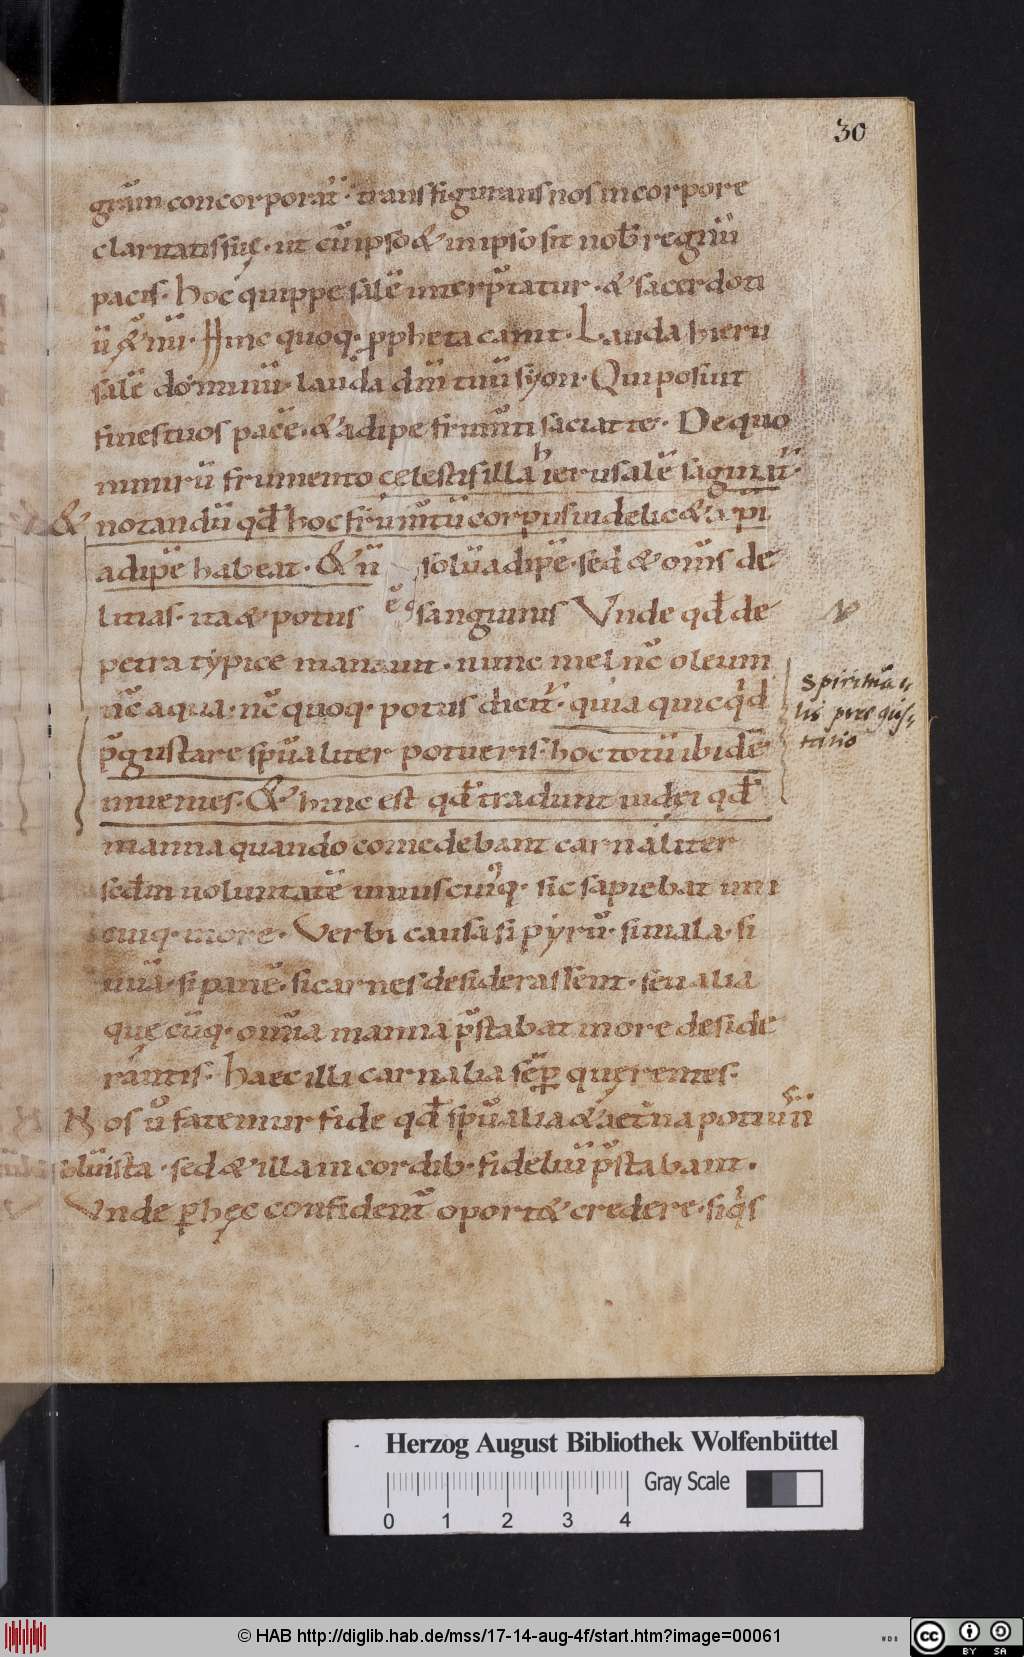 30
grãm concorporat̃· transfigurans nos in corpore
claritatis suę· ut cũ ipso & in ipso sit nob̃ regnũ
pacis· hoc quippe salẽ interp̃tatur· & sacerdotiũ
Hinc quoq· ppheta canit· Lauda hieru
salẽ dominũ· lauda dñm tuũ syon· Qui posuit
fines tuos pacẽ· & adipe frum̃ti saciat te· De quo
nimirũ frumento celestis illa hierusalẽ saginat̃·
& notandũ qd̃ hoc frum̃tũ corpus uidelic& xp̃i
adipẽ habeat· & ñ solũ adipẽ· sed & om̃s de
litias· ita & potus ẽ sanguinis Vnde qd̃ de
petra typice manauit· nunc mel nc̃ oleum
nc̃ aqua· nc̃ quoq· potus dicit̃· quia quicqd
p̃gustare sp̃ualiter potueris· hoc totũ ibidẽ
inuenies· & hinc est qd̃ tradunt iudei qd̃
manna quando comedebant carnaliter
scdm uoluntatẽ uniuscuiq· sic sapiebat uni
cuiq· more· Verbi causa si pyrũ· si mala· si
uuã· si panẽ· si carnes desiderassent· seu alia
quę cũq· omĩa manna p̃stabat more deside
rantis· haec illi carnalia sẽp querentes·
Nos ũ fatemur fide qd̃ sp̃ualia & aet̃na potiũ ñ
sol uista· sed & illa in cordib· fideliũ p̃stabant·
Vnde p hęc confident̃ oport& credere· siqs
Spiritua„
lis prægus„
tatio
Herzog August Bibliothek Wolfenbüttel
Gray Scale
0 1 2 3 4
© HAB http://diglib.hab.de/mss/17-14-aug-4f/start.htm?image=00061
cc BY SA